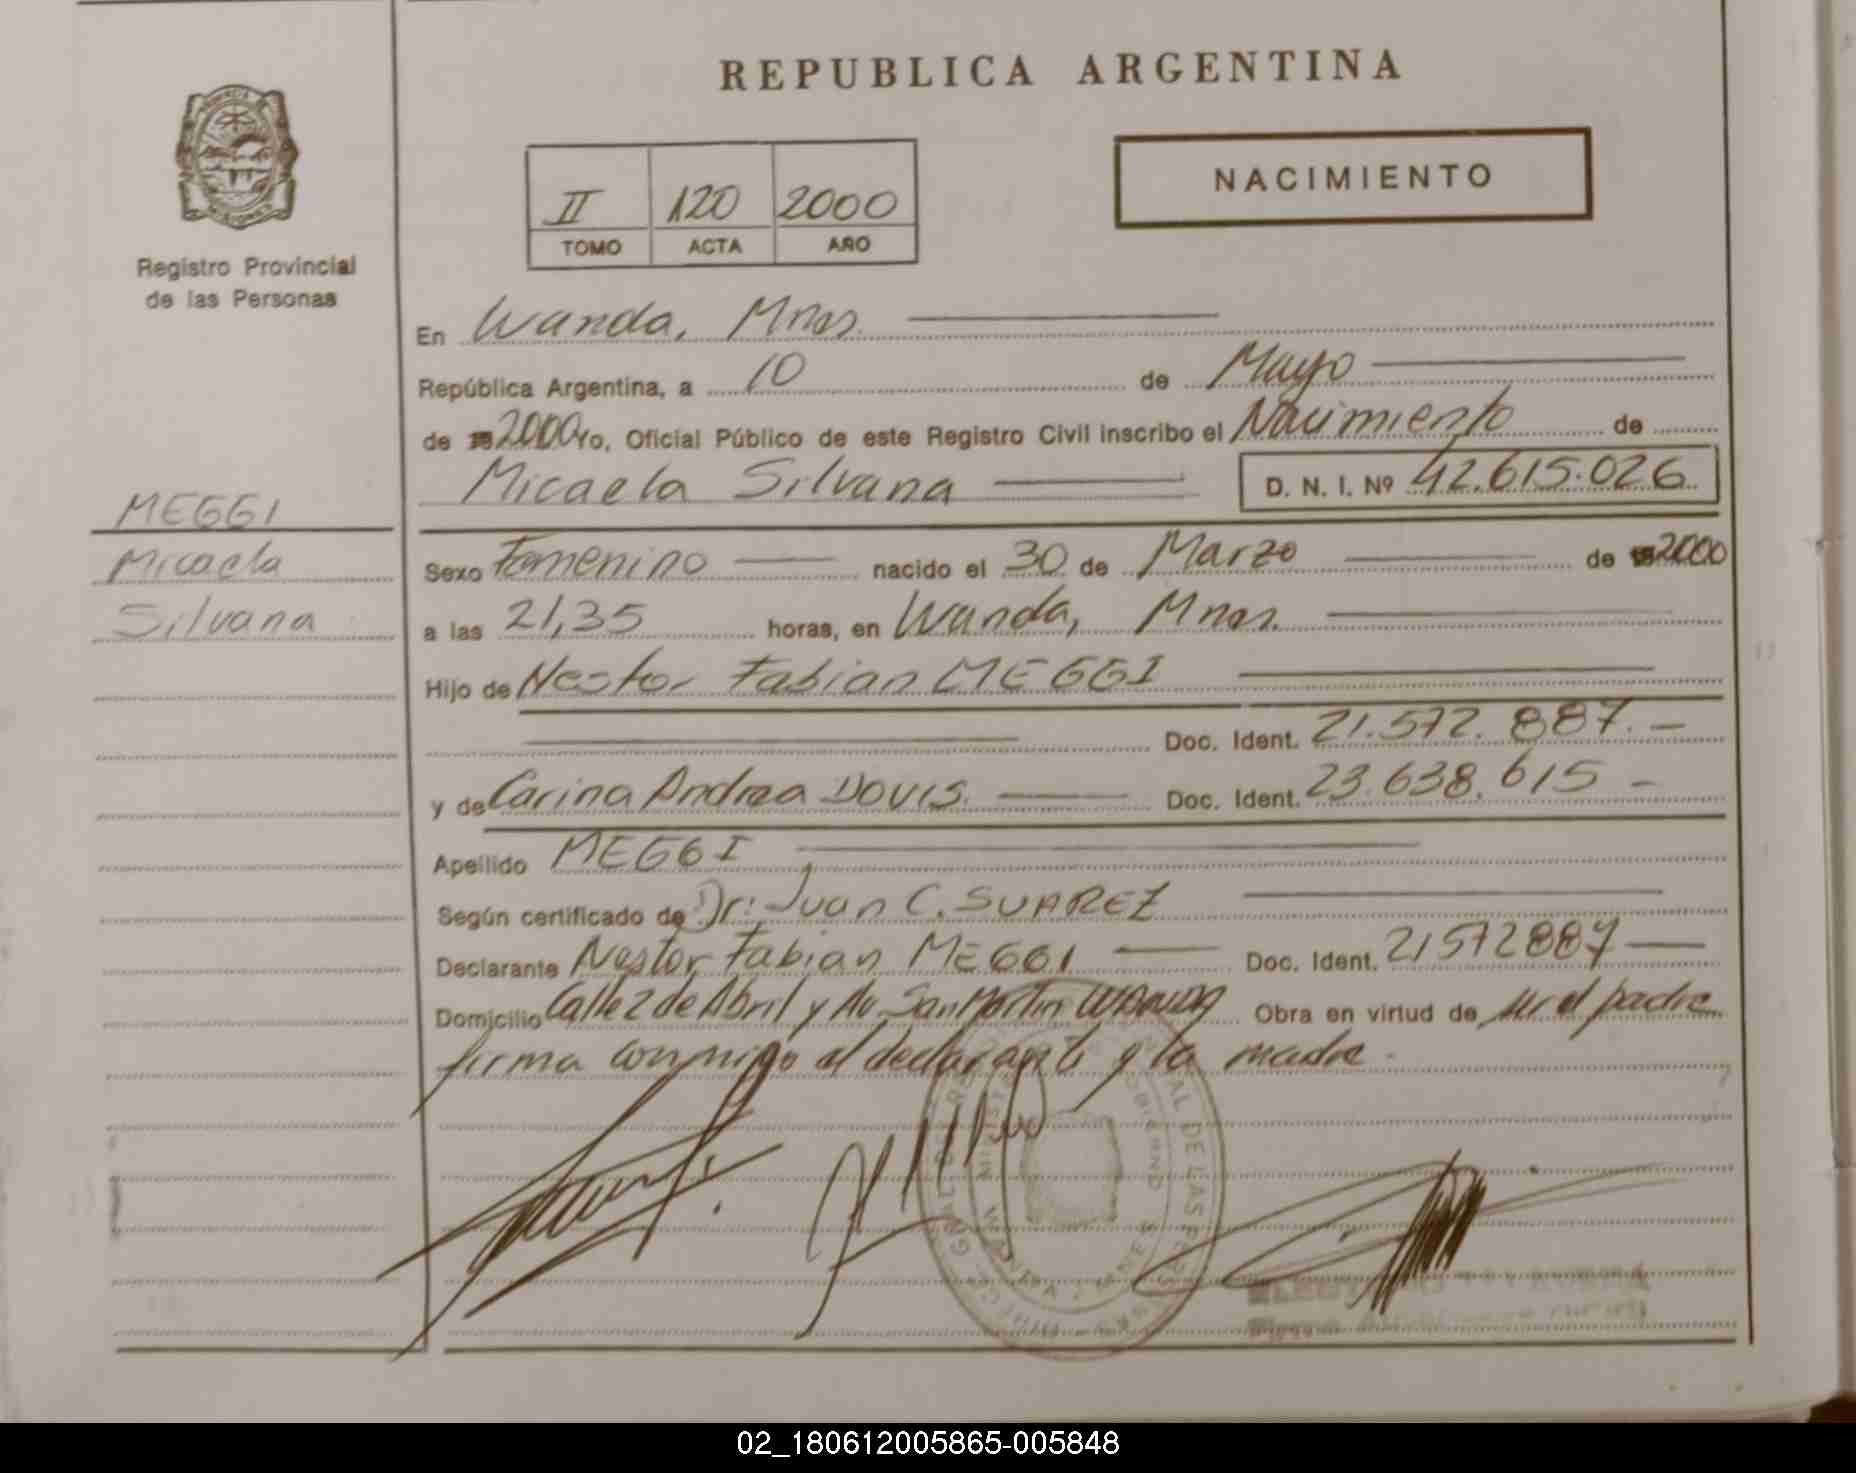 REPUBLICA ARGENTINA
NACIMIENTO
II 120 2000
TOMO ACTA AÑO
Registro Provincial
de las Personas
En Wanda, Mnes.
República Argentina, a 10 de Mayo
de 2000 Yo, Oficial Público de este Registro Civil inscribo el Nacimiento de
Micaela Silvana D. N. I. Nº 42.615.026
MEGGI
Micaela
Silvana
Sexo Femenino nacido el 30 de Marzo de 2000
a las 21,35 horas, en Wanda, Mnes.
Hijo de Nestor Fabian MEGGI
Doc. Ident. 21.572.887.-
y de Carina Andrea DOVIS. Doc. Ident. 23.638.615 -
Apellido MEGGI
Según certificado de Dr: Juan C. SUAREZ
Declarante Nestor Fabian MEGGI Doc. Ident. 21572887
Domicilio Calle 2 de Abril y Av San Martin WANDA Obra en virtud de ser el padre
firma conmigo el declarante y la madre.
02_180612005865-005848